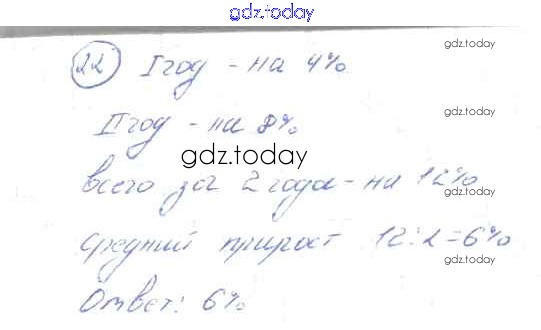 gdz.today
gdz.today
22 I год - на 4%
gdz.today
II год - на 8%
gdz.today
всего за 2 года - на 12%
gdz.today
средний прирост 12:2=6%
gdz.today
Ответ: 6%
gdz.today